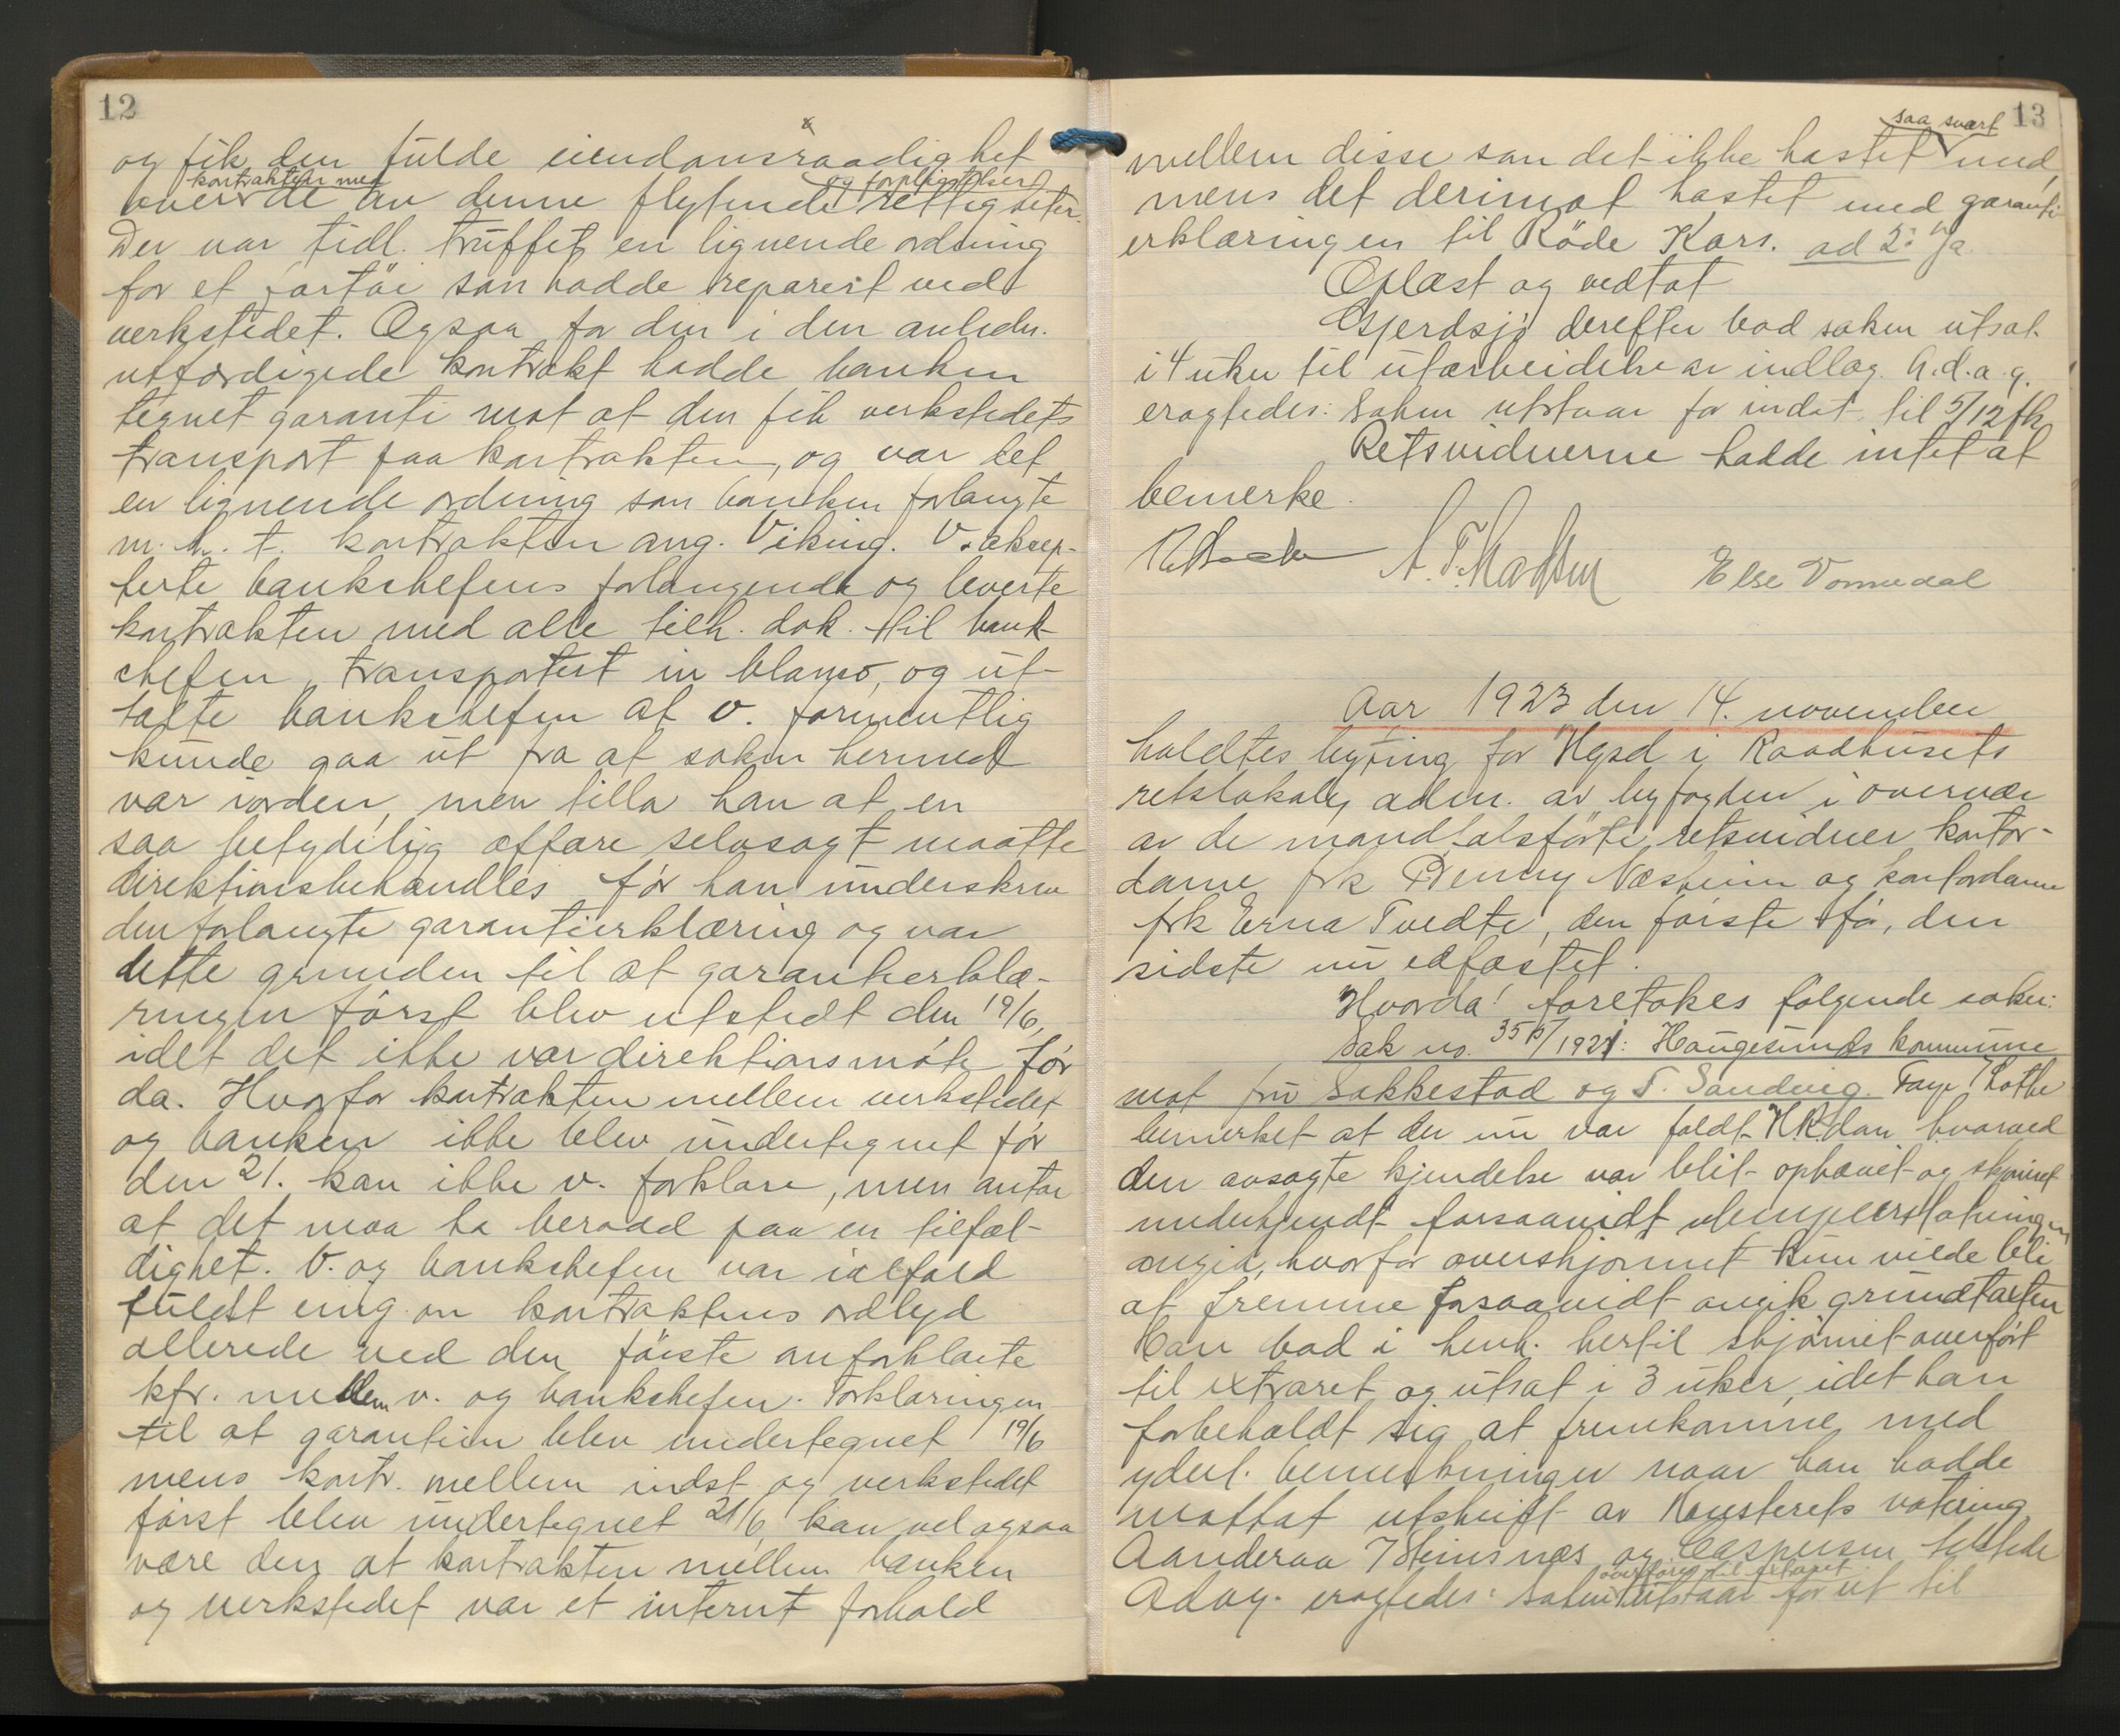 12
og fik den fulde eiendomsraadighet
kontrakten med og forpligtelser
over de av denne flytende rettigheter.
Der var tidl. truffet en lignende ordning
for et fartöi som hadde reparert ved
verkstedet. Ogsaa for den i den anledn.
utfærdigede kontrakt hadde banken
tegnet garanti mot at den fik verkstedets
transport paa kontrakten, og var det
en lignende ordning som banken forlangte
m.h.t. kontrakten ang. Viking. V. aksep-
terte bankchefens forlangende og leverte
kontrakten med alle tilh. dok. til bank-
chefen, transportert in blanco, og ut-
talte bankchefen at v. formentlig
kunde gaa ut fra at saken hermed
var iorden, men tilla han at en
saa betydelig affære selvsagt maatte
direktionsbehandles før han underskrev
den forlangte garantierklæring og var
dette grunden til at garantierklæ-
ringen först blev utstedt den 19/6,
idet det ikke var direktionsmöte før
da. Hvorfor kontrakten mellem verkstedet
og banken ikke blev undertegnet før
den 21. kan ikke v. forklare, men antar
at det maa ha beroad paa en tilfæl-
dighet. V. og bankchefen var ialfald
fuldt enig om kontraktens ordlyd
allerede ved den förste omforklarte
kfr. mellem v. og bankchefen. Forklaringen
til at garantien blev undertegnet 19/6
mens kontr. mellem indst. og verkstedet
först blev undertegnet 21/6 kan vel ogsaa
være den at kontrakten mellem banken
og verkstedet var et internt forhold
13
saa svært
mellem disse som det ikke hastet med,
mens det derimot hastet med garanti-
erklæringen til Röde Kors. ad 2: Ja.
Oplæst og vedtat
Gjerdsjö derefter bad saken utsat
i 4 uker til utarbeidelse av indlæg. A.d.a.g.
eragtedes: Saken utstaar for indst. til 5/12 fk
Retsvidnerne hadde intet at
bemerke.
A. T. Madsen Else Vormedal
Aar 1923 den 14. november
holdtes byting for Hgsd i Raadhusets
retslokale, adm. av byfogden i overvær
av de mandtalsförte retsvidner kontor-
dame frk Denny Næsheim og kontordame
frk Erna Tvedte, den förste för, den
sidste nu edfæstet.
Hvorda! foretokes følgende saker:
Sak no. 35 b/1921: Haugesunds kommune
mot fru Sakkestad og T. Sandvig. Faye / Lothe
bemerket at der nu var faldt H.R.dom hvorved
den avsagte kjendelse var blit ophævet og skjönnet
underkjendt forsaavidt ulempeerstatningen
angik, hvorfor overskjønnet kun vilde bli
at fremme forsaavidt angik grundtaxten
Han bad i henh. hertil skjönnet overført
til extraret og utsat i 3 uker, idet han
forbeholdt sig at fremkomme med
yderl. bemerkninger naar han hadde
mottat utskrift av Høiesterets votering
Aanderaa / Steinsnæs og Caspersen tilstede
overføres til extraret
Adag. eragtedes: Saken utstaar for ut til